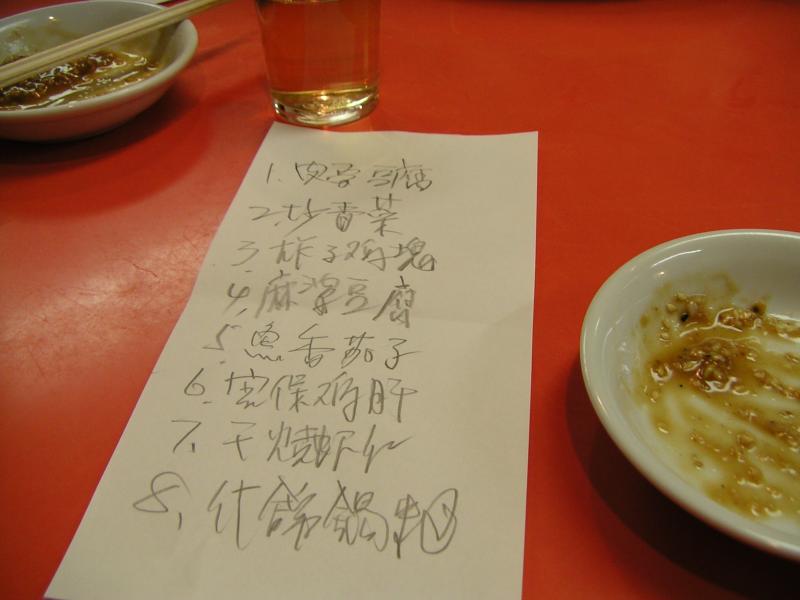 1. 肉末豆腐
2. 炒青菜
3. 炸子鸡塊
4. 麻婆豆腐
5. 魚香茄子
6. 宫保鸡肝
7. 干燒虾仁
8. 什錦鍋粑